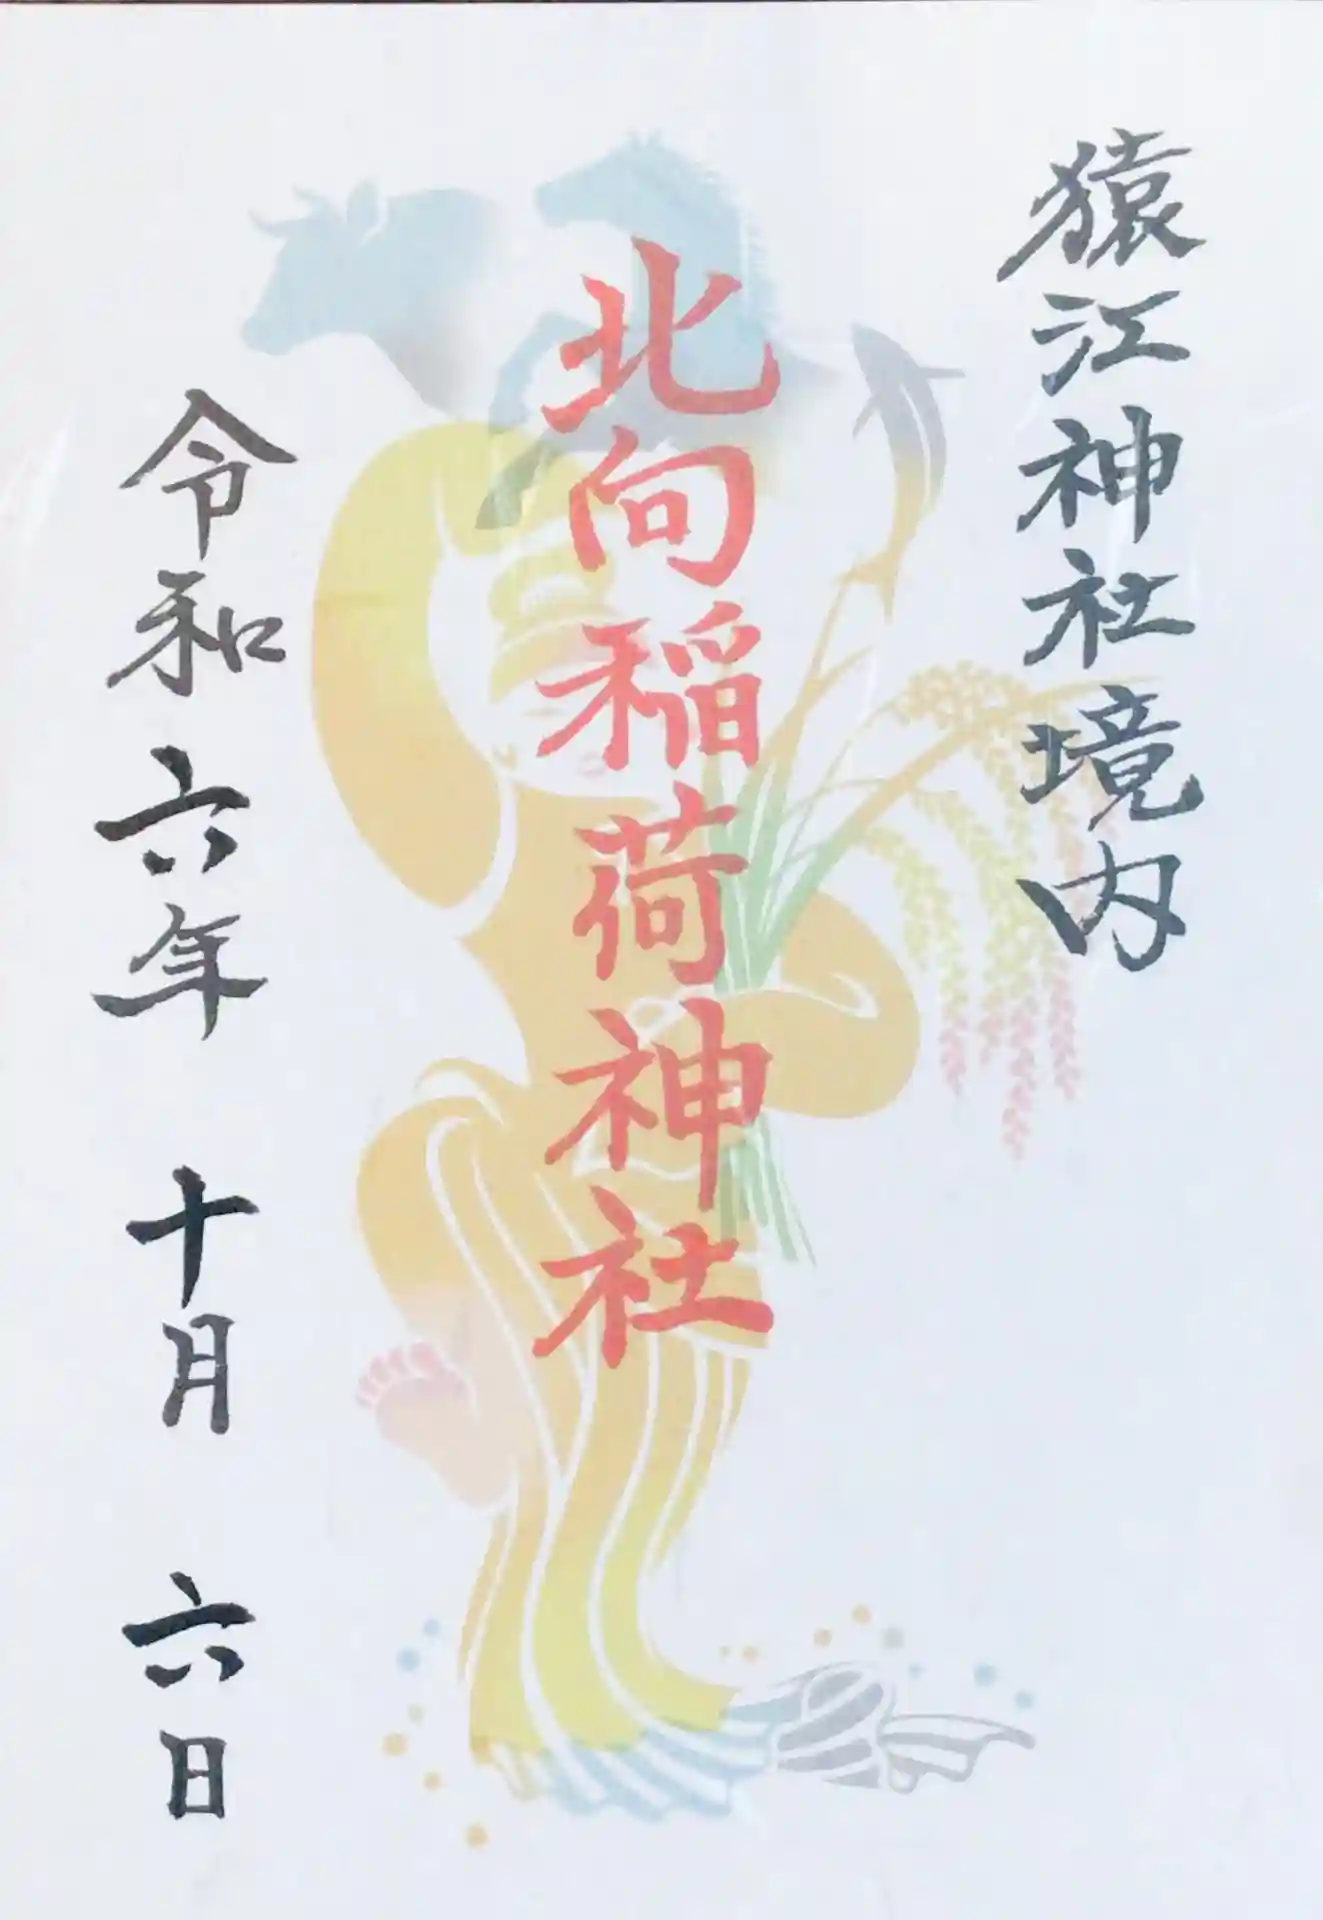 猿江神社境内
北向稲荷神社
令和六年 十月 六日